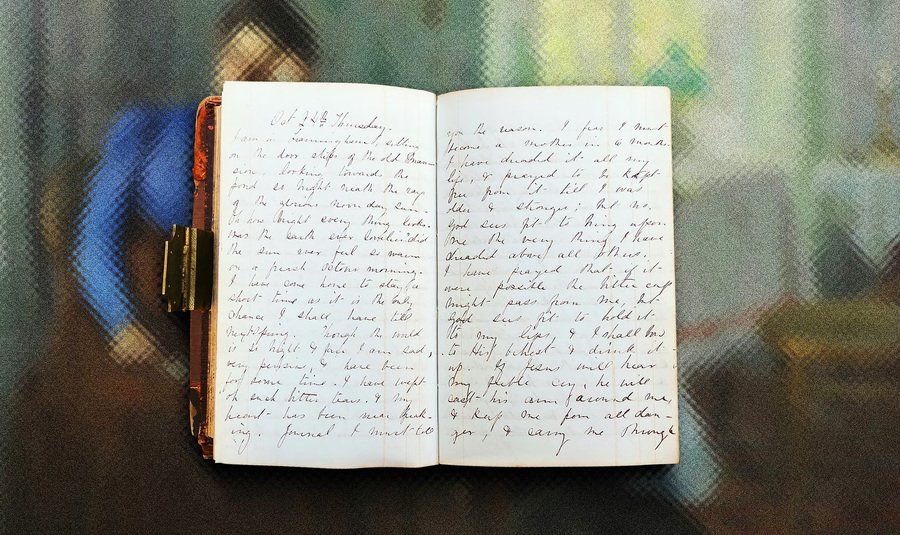 Oct 24th Thursday.
I am in Framingham, sitting
on the door steps of the old Man-
sion, looking towards the
pond so bright neath the rays
of the glorious noon day sun.
Oh how bright every thing looks.
Was the earth ever lovelier? did
the sun ever feel so warm
on a fresh October morning.
I have come home to stay, a
short time as it is the only
chance I shall have till
next spring. Though the world
is so bright & fair I am sad,
very pensive, & have been
for some time. I have wept
oh such bitter tears. & my
heart has been near break-
ing. Journal I must tell
you the reason. I fear I must
become a mother in 6 months.
I have dreaded it all my
life, & prayed to be kept
free from it till I was
older & stronger; but no.
God sees fit to bring upon
me the very thing I have
dreaded above all others.
I have prayed that if it
were possible the bitter cup
might pass from me, but
God sees fit to hold it
to my lips & I shall bow
to His behest & drink it
up. If Jesus will hear
my feeble cry, he will
cast his arm around me,
& keep me from all dan-
ger, & carry me through